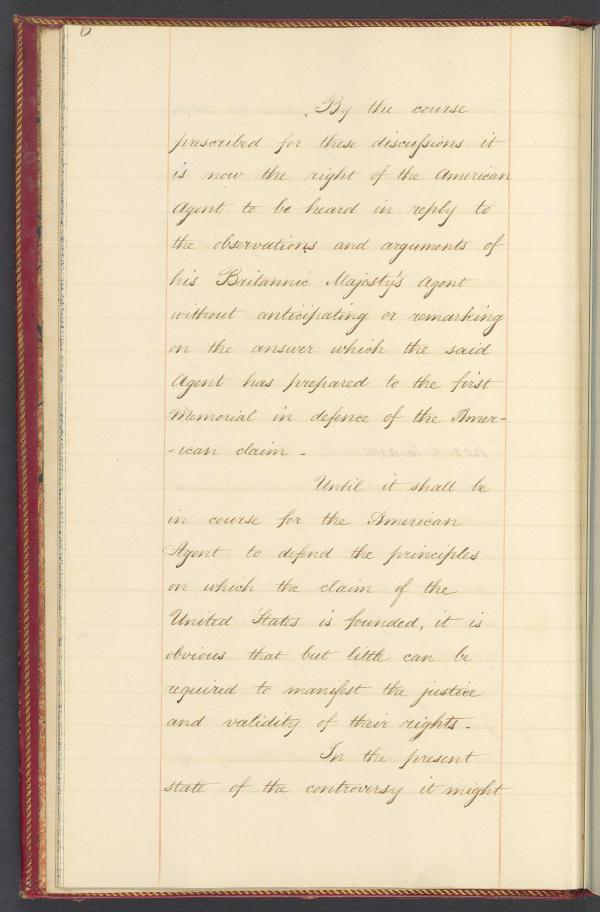 6
By the course
prescribed for these discussions it
is now the right of the American
Agent to be heard in reply to
the observations and arguments of
his Britannic Majesty's Agent
without anticipating or remarking
on the answer which the said
Agent has prepared to the first
Memorial in defence of the Amer-
-ican claim -
Until it shall be
in course for the American
Agent to defend the principles
on which the claim of the
United States is founded, it is
obvious that but little can be
required to manifest the justice
and validity of their rights -
In the present
state of the controversy it might